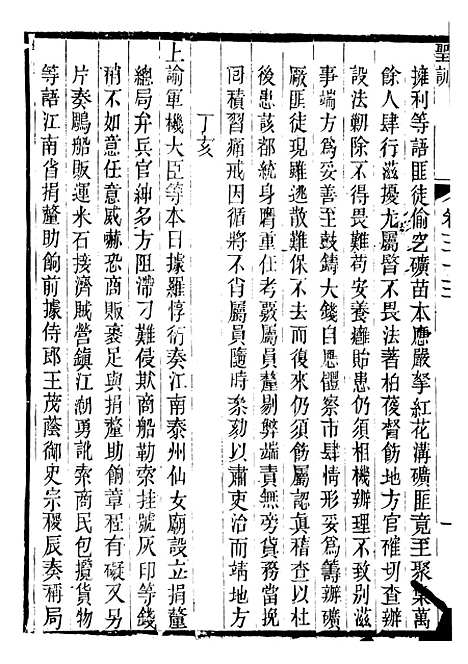 聖訓
卷三十三
擁利等語匪徒偷空礦苗本應嚴拏紅花溝礦匪竟至聚集萬
餘人肆行滋擾尤屬瞀不畏法著柏葰督飭地方官確切查辦
設法剿除不得畏難苟安養癰貽患仍須相機辦理不致別滋
事端方為妥善至鼓鑄大錢自應體察市肆情形妥為籌辦礦
廠匪徒現雖解散難保不去而復來仍須飭屬認真稽查以杜
後患該都統身膺重任考覈屬員釐剔弊端責無旁貸務當挽
回積習痛戒因循將不肖屬員隨時叅劾以肅吏治而靖地方
丁亥
上諭軍機大臣等本日據羅惇衍奏江南泰州仙女廟設立捐釐
總局弁兵官紳多方阻滯刁難侵欺商船勒索挂號灰印等錢
稍不如意任意威嚇恐商販裹足與捐釐助餉章程有礙又另
片奏鵰船販運米石接濟賊營鎮江潮勇訛索商民包攬貨物
等語江南省捐釐助餉前據侍郎王茂蔭御史宗稷辰奏稱局